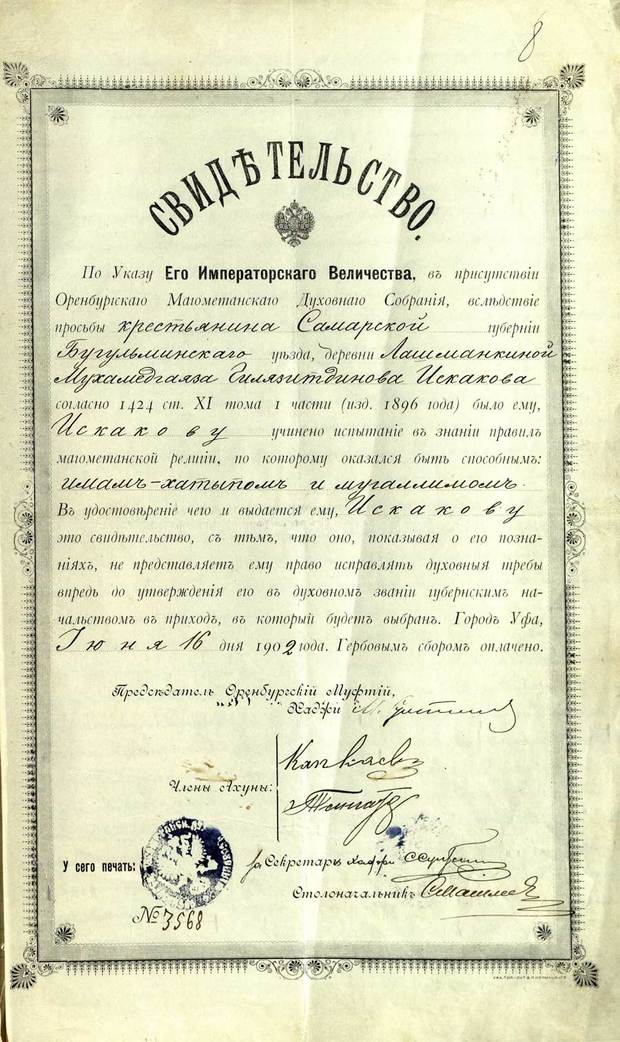 8
СВИДѢТЕЛЬСТВО.
По Указу Его Императорскаго Величества, въ присутствіи
Оренбургскаго Магометанскаго Духовнаго Собранія, вслѣдствіе
просьбы крестьянина Самарской губерніи
Бугульминскаго уѣзда, деревни Лашманкиной
Мухамедгаяза Гилязитдинова Искакова
согласно 1424 ст. XI тома 1 части (изд. 1896 года) было ему,
Искакову учинено испытаніе въ знаніи правилъ
магометанской религіи, по которому оказался быть способнымъ:
имамъ-хатыпомъ и мугаллимомъ.
Въ удостовѣреніе чего и выдается ему, Искакову
это свидѣтельство, съ тѣмъ, что оно, показывая о его позна-
ніяхъ, не представляетъ ему право исправлять духовныя требы
впредь до утвержденія его въ духовномъ званіи губернскимъ на-
чальствомъ въ приходъ, въ который будетъ выбранъ. Городъ Уфа,
Іюня 16 дня 1902 года. Гербовымъ сборомъ оплачено.
Предсѣдатель Оренбургскій Муфтій,
Хаджи М.
Члены Ахуны:
Капкаевъ
У сего печать:
Секретарь
Столоначальникъ
№ 3568